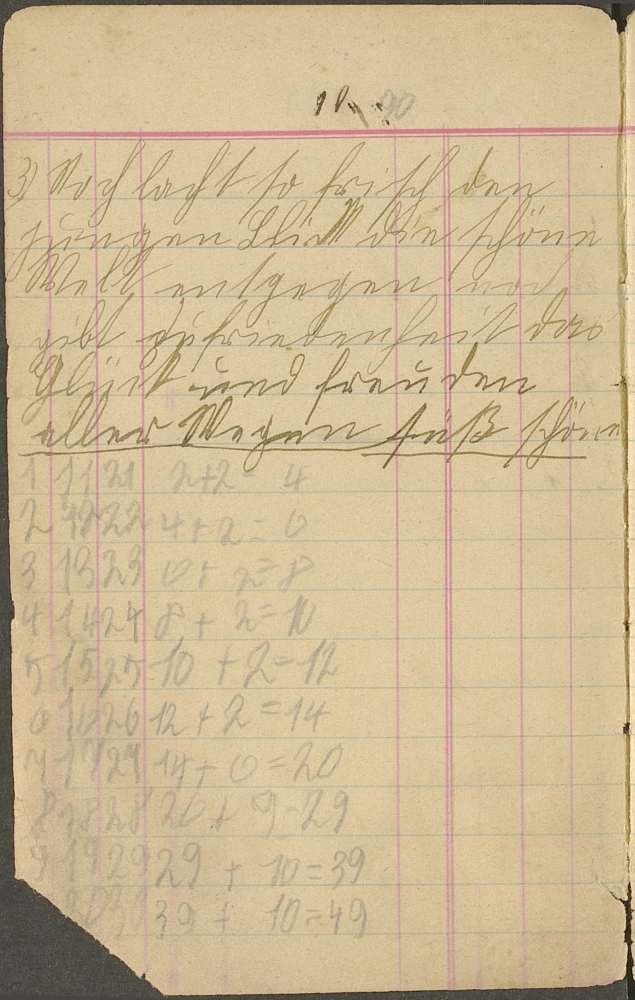 3) Noch lacht so frisch den
jungen Blick die schöne
Welt entgegen noch
gibt zufriedenheit das
Glück und freuden
aller Wegen süß schöne
1 11 21 2+2= 4
2 12 22 4+2=6
3 13 23 6+ 2=8
4 14 24 8+ 2=10
5 15 25 10 +2=12
6 16 26 12+2=14
7 17 27 14+6=20
8 18 28 20+ 9=29
9 19 29 29 + 10=39
30 39 + 10=49